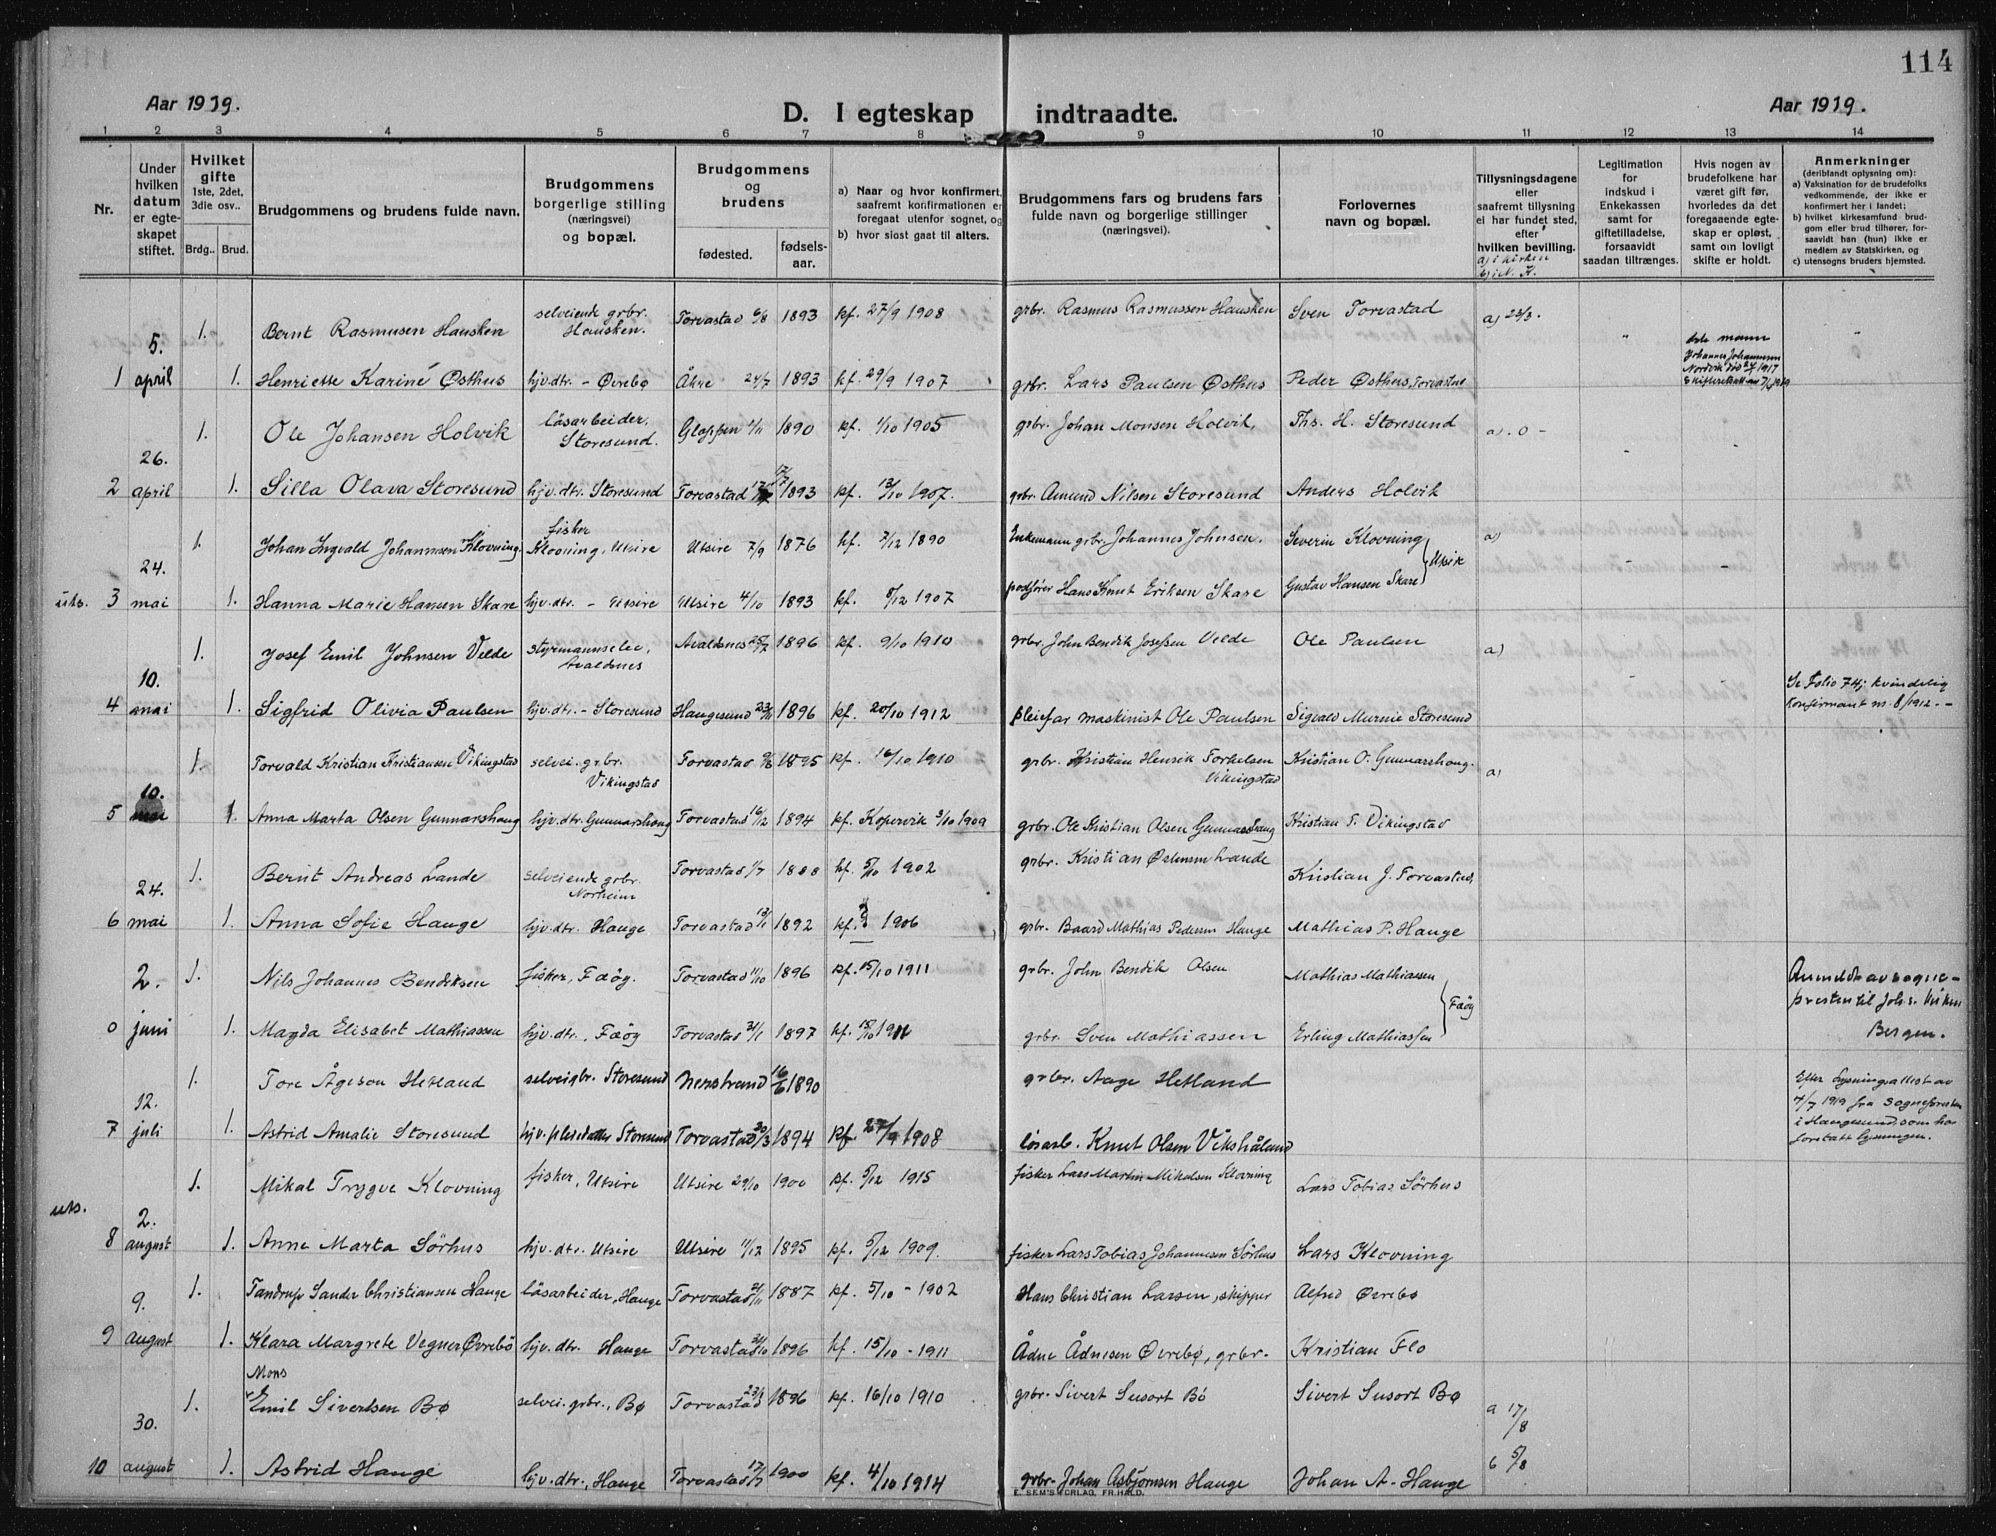 114
Aar 1919.
D. I egteskap indtraadte.
Aar 1919.
1 2 3 4 5 6 7 8 9 10 11 12 13 14
Nr.
Under hvilken datum er egteskapet stiftet.
Hvilket gifte 1ste, 2det, 3die osv..
Brdg.. Brud.
Brudgommens og brudens fulde navn.
Brudgommens borgerlige stilling (næringsvei) og bopæl.
Brudgommens og brudens
fødested. fødsels-aar.
a) Naar og hvor konfirmert, saafremt konfirmationen er foregaat utenfor sognet, og
b) hvor sidst gaat til alters.
Brudgommens fars og brudens fars fulde navn og borgerlige stillinger (næringsvei).
Forlovernes navn og bopæl.
Tillysningsdagene eller saafremt tillysning ei har fundet sted, efter hvilken bevilling.
a) i kirken
b) i N. K.
Legitimation for indskud i Enkekassen samt for giftetilladelse, forsaavidt saadan tiltrænges.
Hvis nogen av brudefolkene har været gift før, hvorledes da det foregaaende egteskap er opløst, samt om lovligt skifte er holdt.
Anmerkninger (deriblandt oplysning om):
a) Vaksination for de brudefolks vedkommende, der ikke er konfirmert her i landet;
b) hvilket kirkesamfund brudgom eller brud tilhører, forsaavidt han (hun) ikke er medlem av Statskirken, og
c) utensogns bruders hjemsted.
5. 1. Bernt Rasmusen Hausken selveiende grbr. Hausken. Torvastad 6/8 1893 kf. 27/9 1908 grbr. Rasmus Rasmussen Hausken Sven Torvastad a) 23/3.
1 april 1. Henriette Karine Østhus hjv.dtr. - Øvrebø Åkre 24/7 1893 kf. 29/9 1907 grbr. Lars Paulsen Østhus Peder Østhus, Torvastad
1. Ole Johansen Holvik løsarbeider, Storesund. Gloppen 1890 kf. 1/10 1905 grbr. Johan Monsen Holvik, Ths. H. Storesund a) . 0 -
26.
2 april 1. Silla Olava Storesund hjv.dtr. Storesund Torvastad 1893 kf. 13/10 1907. grbr. Amund Nilsen Storesund Anders Holvik
1. Johan Ingvald Johannesen Klovning fisker Klovning, Utsire Utsire 7/9 1876 kf. 7/12 1890 Enkemann grbr. Johannes Johnsen. Severin Klovning a)
24.
uts. 3 mai 1. Hanna Marie Hansen Skare hjv.dtr. - Utsire Utsire 4/10 1893 kf. 8/12 1907 Hans Knut Eriksen Skare Gustav Hansen Skare
1. Josef Emil Johnsen Velde styrmannselev, Avaldsnes Avaldsnes 25/7 1896 kf. 9/10 1910 grbr. John Bendik Josefsen Velde Ole Paulsen a)
10.
4 mai 1. Sigfrid Olivia Paulsen hjv.dtr. - Storesund Haugesund 1896 kf. 20/10 1912 pleiefar maskinist Ole Paulsen Sigvald Storesund Se Folio 74j kvindelig Konfirmant nr. 8/1912. -
1. Torvald Kristian Kristiansen Vikingstad selvei. grbr. Vikingstad Torvastad 1895 kf. 16/10 1910 grbr. Kristian Henrik Torkelsen Vikingstad Kristian O. Gunnarshaug. a)
10.
5 mai 1. Anna Marta Olsen Gunnarshaug hjv.dtr. Gunnarshaug Torvastad 16/12 1894 kf. Kopervik 3/10 1909 grbr. Ole Kristian Olsen Gunnarshaug Kristian T. Vikingstad
1. Bernt Andreas Lande selveiende grbr. Norheim Torvastad 1/7 1888 kf. 5/10 1902 grbr. Kristian Østensen Lande Kristian J. Torvastad,
24.
6 mai 1. Anna Sofie Hauge hjv.dtr. Hauge Torvastad 13/1 1892 kf. ? 1906 grbr. Baard Mathias Pedersen Hauge Mathias P. Hauge
2. 1. Nils Johannes Bendiksen fisker, Fæøy. Torvastad 11/10 1896 kf. 15/10 1911 grbr. John Bendik Olsen Mathias Mathiassen Fæøy
0 juni 1. Magda Elisabet Mathiassen hjv.dtr., Fæøy Torvastad 21/1 1897 kf. 15/10 1911 grbr. Sven Mathiassen Erling Mathiassen Anmeldt av sogne-presten til Johs. Bergen.
1. Tore Ågeson Hetland selvei gbr. Storesund Nerstrand 16/6 1890 grbr. Aage Hetland
12.
7 juli 1. Astrid Amalie Storesund hjv. pleiedatter Storesund Torvastad 20/3 1894 kf. 27/9 1908 løsarb. Knut Olsen Vikshåland Efter Lysningsattest av 4/7 1919 fra Sognepresten i Haugesund, som har foretatt lysningen.
1. Mikal Trygve Klovning fisker, Utsire Utsire 29/10 1900 kf. 5/12 1915 fisker Lars Martin Mikalsen Klovning Lars Tobias Sørhus
uts. 2.
8 august 1. Anne Marta Sørhus hjv.dtr. Utsire Utsire 11/12 1895 kf. 5/12 1909. fisker Lars Tobias Johannesen Sørhus Lars Klovning
9. 1. Tandrup Sander Christiansen Hauge løsarbeider, Hauge Torvastad 2/11 1887 kf. 5/10 - 1902 Hans Christian Larsen, skipper Alfred Øvrebø
9 august 1. Klara Margrete Vegner Øvrebö hjv.dtr. Hauge Torvastad 1896 kf. 15/10 - 1911 Ådne Ådnesen Øvrebø, grbr. Kristian Flo
30. 1. Mons Emil Sivertsen Bø selvei. grbr., Bø Torvastad 23/9 1896 kf. 16/10 1910 grbr. Sivert Susort Bö Sivert Susort Bø a 17/8
10 august 1. Astrid Hauge hjv.dtr., Hauge Torvastad 17/7 1900 kf. 4/10 1914 grbr. Johan Asbjørnsen Hauge Johan A. Hauge b 5/8
E. SEM'S FORLAG, FR.HALD.